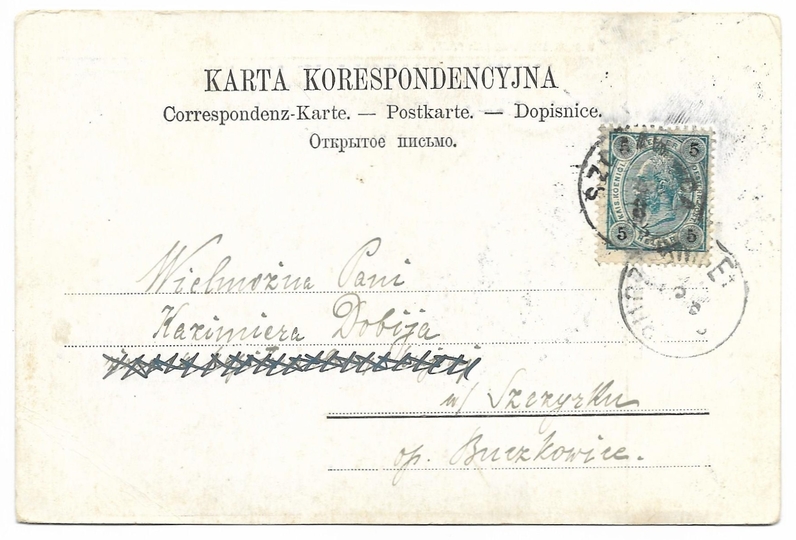 KARTA KORESPONDENCYJNA
Correspondenz-Karte. — Postkarte. — Dopisnice.
Открытое письмо.
5 5
KAIS. KOENIGL.
5 5
Wielmożna Pani
Kazimiera Dobija
w/ Szczyrku
op. Buczkowice.